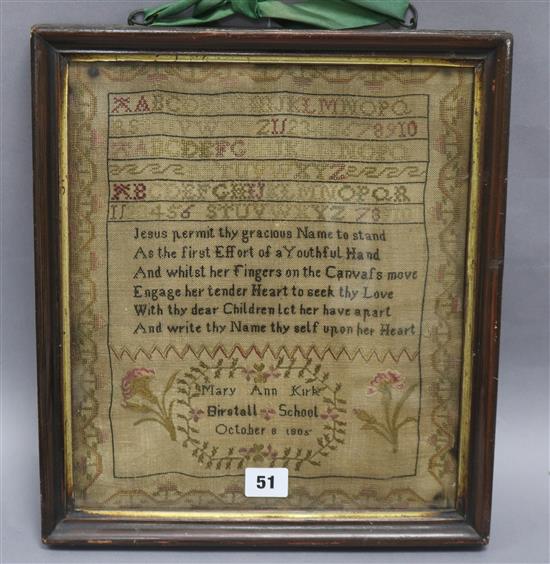 ABCDEFGHIJKLMNOPQ
RS VW Z 1234 678910
ABCDEFG IJK NOPQ
TUVWXYZ
ABCDEFGHIJKLMNOPQR
456 STUV XYZ 78910
Jesus permit thy gracious Name to stand
As the first Effort of a Youthful Hand
And whilst her Fingers on the Canvafs move
Engage her tender Heart to seek thy Love
With thy dear Children let her have a part
And write thy Name thy self upon her Heart
Mary Ann Kirk
Birstall School
October 8 1805
51